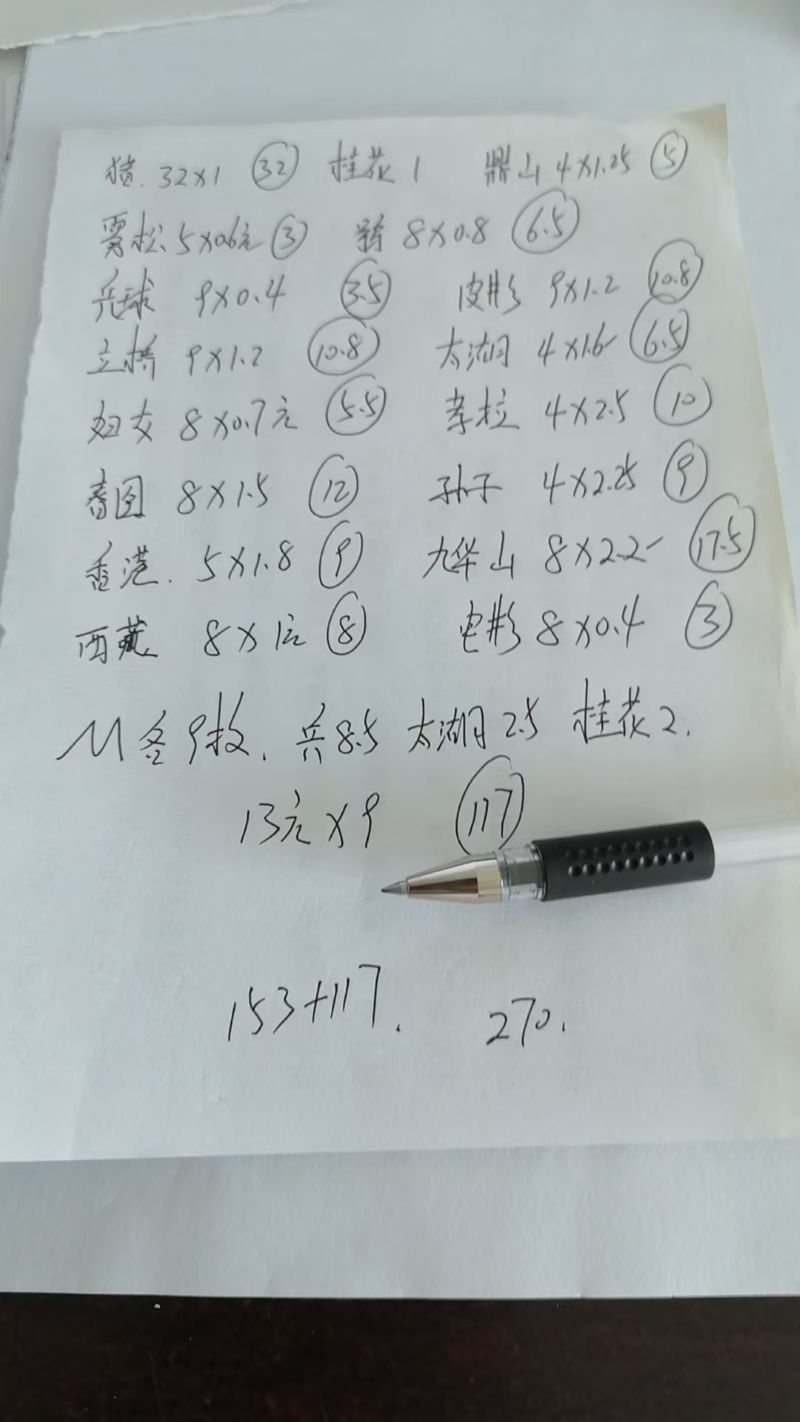 猪. 32×1 32 桂花 1 鼎山 4×1.25 5
雾松 5×0.6元 3 8×0.8 6.5
乒球 9×0.4 3.5 皮影 9×1.2 10.8
立桥 9×1.2 10.8 太湖 4×1.6 6.5
妇女 8×0.7元 5.5 孝拉 4×2.5 10
8×1.5 12 孙子 4×2.25 9
香港. 5×1.8 9 九华山 8×2.2 17.5
西藏 8×1元 8 电影 8×0.4 3
M各9枚. 兵8.5 太湖2.5 桂花2.
13元×9 117
153+117. 270.